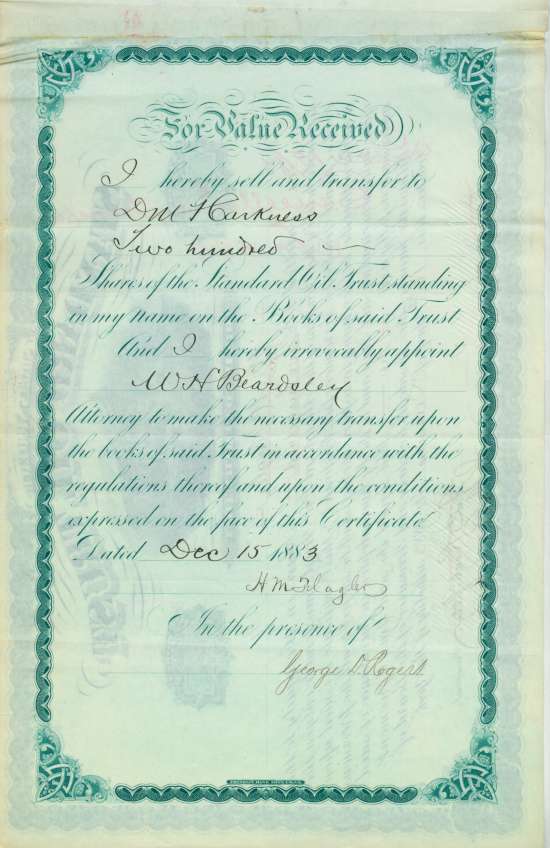 For Value Received
I hereby sell and transfer to
D M Harkness
Two hundred —
Shares of the Standard Oil Trust standing
in my name on the Books of said Trust
And I hereby irrevocably appoint
W H Beardsley
Attorney to make the necessary transfer upon
the books of said Trust in accordance with the
regulations thereof and upon the conditions
expressed on the face of this Certificate
Dated Dec 15 1883
H M Flagler
In the presence of
George D. Rogers